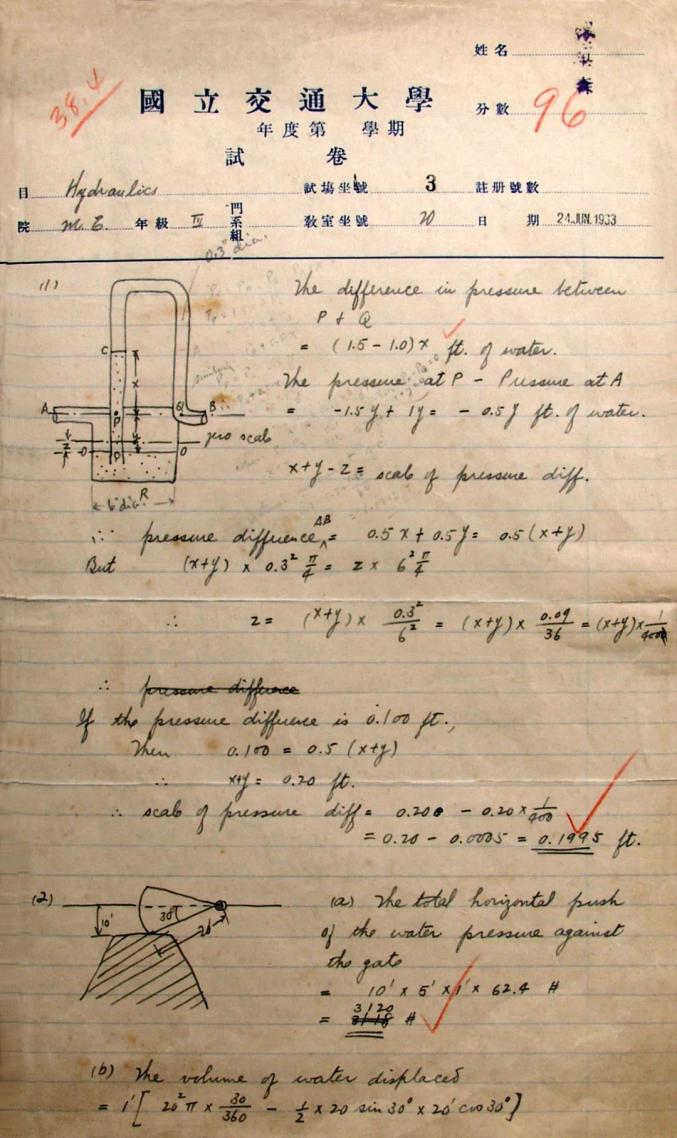 姓名
38.4
國立交通大學
分數 96
年度第 學期
試卷
目 Hydraulics 試場坐號 3 註册號數
院 M. E. 年級 IV 門系組 教室坐號 20 日期 24.JUN.1933
0.3" dia.
(1)
The difference in pressure between
P & Q
= (1.5 - 1.0)x ft. of water.
The pressure at P - Pressure at A
= -1.5y + 1y = - 0.5y ft. of water.
x+y-z = scale of pressure diff.
C
x
A
P
Q
B
y
zero scale
z
O
O
6" dia.
R
∴ pressure difference AB = 0.5x + 0.5y = 0.5(x+y)
But (x+y) × 0.3² π/4 = z × 6² π/4
∴ z = (x+y) × 0.3²/6² = (x+y) × 0.09/36 = (x+y) × 1/400
∴ pressure difference
If the pressure difference is 0.100 ft.,
Then 0.100 = 0.5 (x+y)
∴ x+y = 0.20 ft.
∴ scale of pressure diff = 0.200 - 0.20 × 1/400
= 0.20 - 0.0005 = 0.1995 ft.
(2)
10'
30°
20'
(a) The total horizontal push
of the water pressure against
the gate
= 10' × 5' × 1' × 62.4 #
= 3120 #
(b) The volume of water displaced
= 1' [ 20² π × 30/360 - 1/2 × 20 sin 30° × 20' cos 30° ]